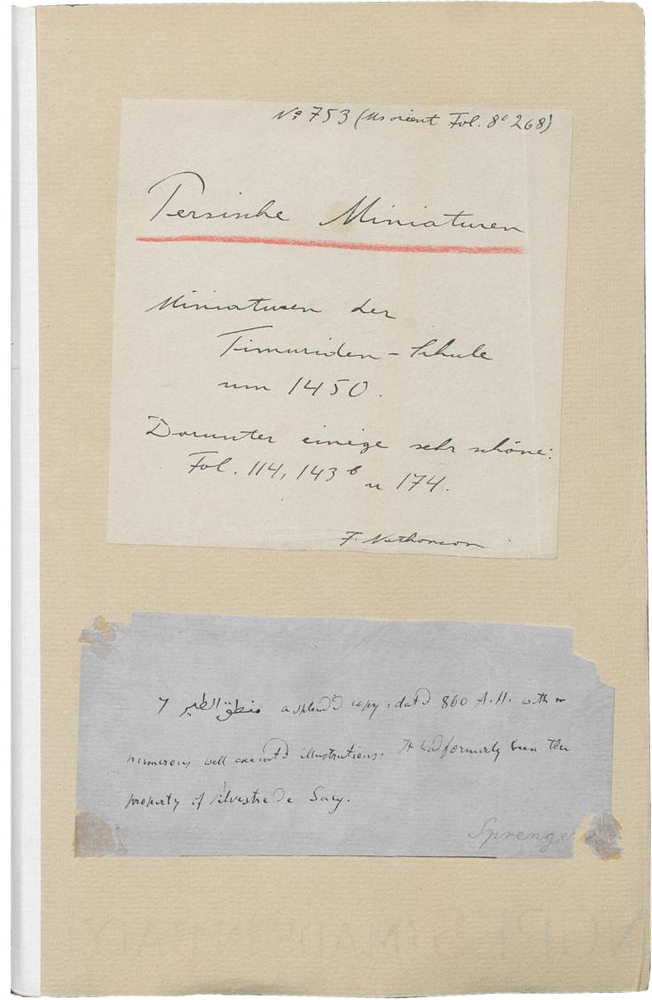 Nº 753 (Ms orient Fol. 8º 268)
Persische Miniaturen
Miniaturen der
Timuriden - Schule
um 1450.
Darunter einige sehr schöne:
Fol. 114, 143b u 174.
F. Nathanson
7 منطق الطير a splendid copy, dated 860 A.H. with
numerous well executed illustrations. It had formerly been the
property of Silvestre de Sacy.
Sprenge